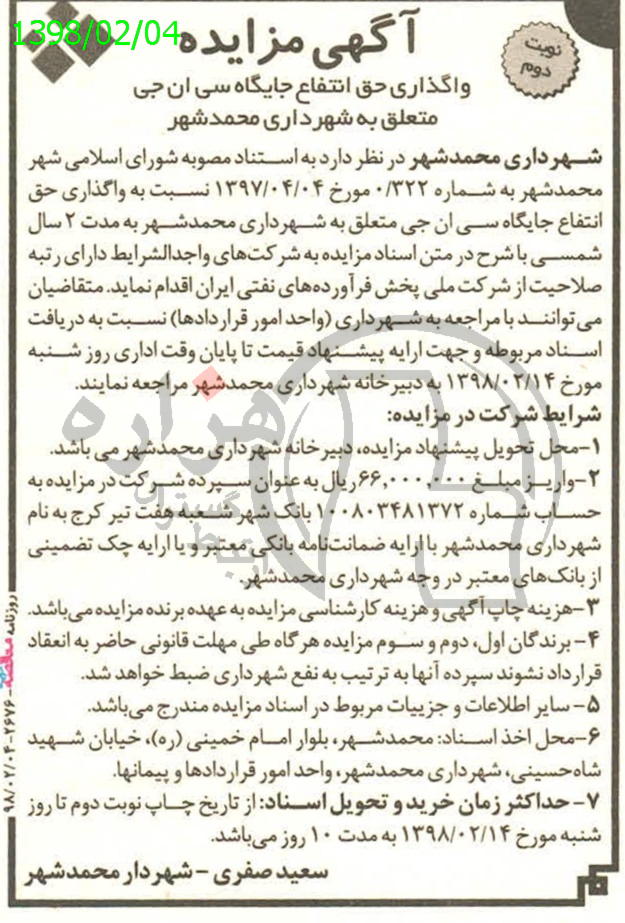 1398/02/04
آگهی مزایده
نوبت
دوم
واگذاری حق انتفاع جایگاه سی ان جی
متعلق به شهرداری محمدشهر
شهرداری محمدشهر در نظر دارد به استناد مصوبه شورای اسلامی شهر
محمدشهر به شماره ۰/۳۲۲ مورخ ۱۳۹۷/۰۴/۰۴ نسبت به واگذاری حق
انتفاع جایگاه سی ان جی متعلق به شهرداری محمدشهر به مدت ۲ سال
شمسی با شرح در متن اسناد مزایده به شرکت‌های واجدالشرایط دارای رتبه
صلاحیت از شرکت ملی پخش فرآورده‌های نفتی ایران اقدام نماید. متقاضیان
می‌توانند با مراجعه به شهرداری (واحد امور قراردادها) نسبت به دریافت
اسناد مربوطه و جهت ارایه پیشنهاد قیمت تا پایان وقت اداری روز شنبه
مورخ ۱۳۹۸/۰۲/۱۴ به دبیرخانه شهرداری محمدشهر مراجعه نمایند.
شرایط شرکت در مزایده:
۱-محل تحویل پیشنهاد مزایده، دبیرخانه شهرداری محمدشهر می باشد.
۲-واریز مبلغ ۶۶,۰۰۰,۰۰۰ریال به عنوان سپرده شرکت در مزایده به
حساب شماره ۱۰۰۸۰۳۴۸۱۳۷۲ بانک شهر شعبه هفت تیر کرج به نام
شهرداری محمدشهر یا ارایه ضمانت‌نامه بانکی معتبر و یا ارایه چک تضمینی
از بانک‌های معتبر در وجه شهرداری محمدشهر.
۳-هزینه چاپ آگهی و هزینه کارشناسی مزایده به عهده برنده مزایده می‌باشد.
۴- برندگان اول، دوم و سوم مزایده هرگاه طی مهلت قانونی حاضر به انعقاد
قرارداد نشوند سپرده آنها به ترتیب به نفع شهرداری ضبط خواهد شد.
۵- سایر اطلاعات و جزییات مربوط در اسناد مزایده مندرج می‌باشد.
۶-محل اخذ اسناد: محمدشهر، بلوار امام خمینی (ره)، خیابان شهید
شاه‌حسینی، شهرداری محمدشهر، واحد امور قراردادها و پیمانها.
۷- حداکثر زمان خرید و تحویل اسناد: از تاریخ چاپ نوبت دوم تا روز
شنبه مورخ ۱۳۹۸/۰۲/۱۴ به مدت ۱۰ روز می‌باشد.
سعید صفری - شهردار محمدشهر
روزنامه مناقصه - ۲۶۷۶ - ۹۸/۰۲/۰۴
هزاره